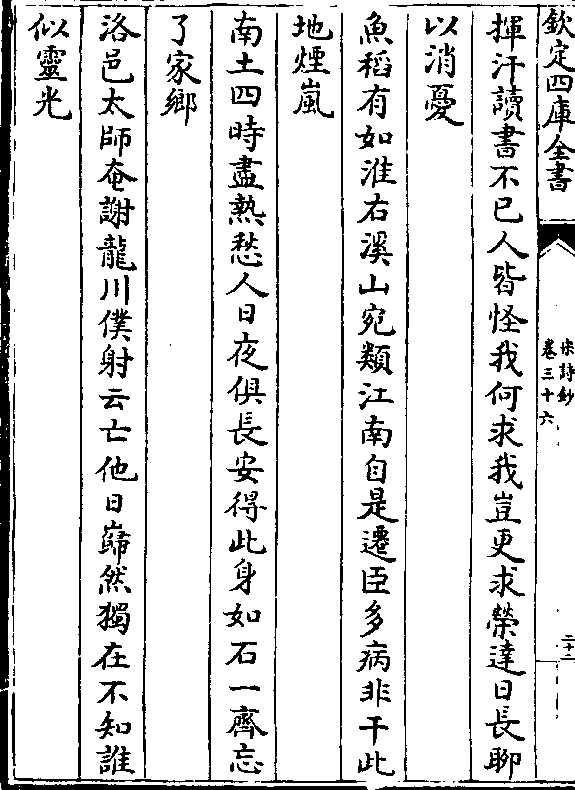 欽定四庫全書
宋詩鈔
卷三十六
二十二
揮汗讀書不已人皆怪我何求我豈更求榮達日長聊
以消憂
魚稻有如淮右溪山宛類江南自是遷臣多病非干此
地煙嵐
南土四時盡熱愁人日夜俱長安得此身如石一齊忘
了家鄉
洛邑太師奄謝龍川僕射云亡他日巋然獨在不知誰
似靈光